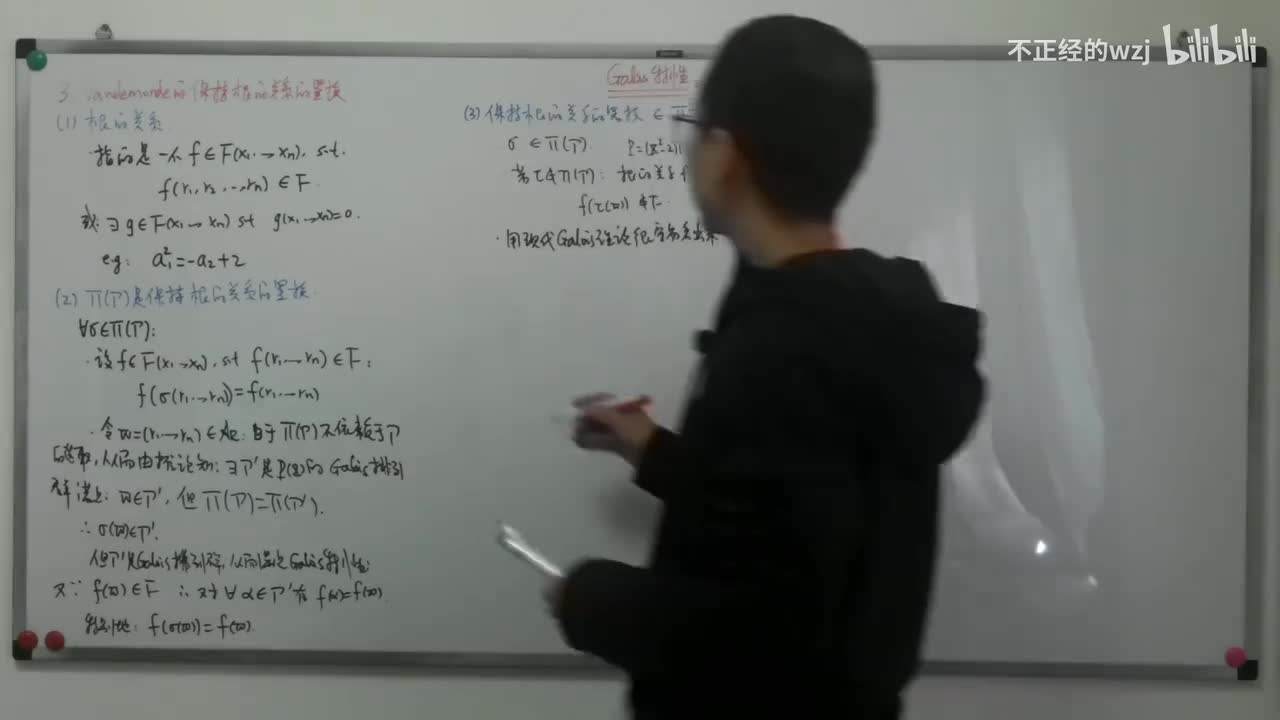 不正经的wzj bilibili
3. Vandemonde的保持根的关系的置换
(1) 根的关系.
· 指的是一个 f∈F(x₁…xₙ), s.t.
f(r₁,r₂,…,rₙ) ∈ F.
或: ∃ g∈F(x₁…xₙ) s.t g(x₁…xₙ)=0.
eg: a₁²=-a₂+2
(2) π(P)是保持根的关系的置换.
∀σ∈π(P):
· 设 f∈F(x₁…xₙ), s.t f(r₁…rₙ)∈F:
f(σ(r₁…rₙ))=f(r₁…rₙ)
· 令ϖ=(r₁…rₙ)∈ 由于 π(P) 不依赖于P
的选取, 从而由 论知: ∃P'是 的 Galois 排列
群 满足: ϖ∈P', 但 π(P)=π(P').
∴ σ(ϖ)∈P'.
但P'是Galois排列群, 从而满足Galois特性:
又∵ f(ϖ)∈F ∴ 对∀α∈P'有 f(α)=f(ϖ).
特别地: f(σ(ϖ))=f(ϖ).
Galois 特性
(3) 保持根的关系的置换 ∈ π
σ ∈ π(P).
若τ∉π(P): 根的关系 f
f(τ(ϖ)) ∉F.
· 用现代Galois理论很容易看出来